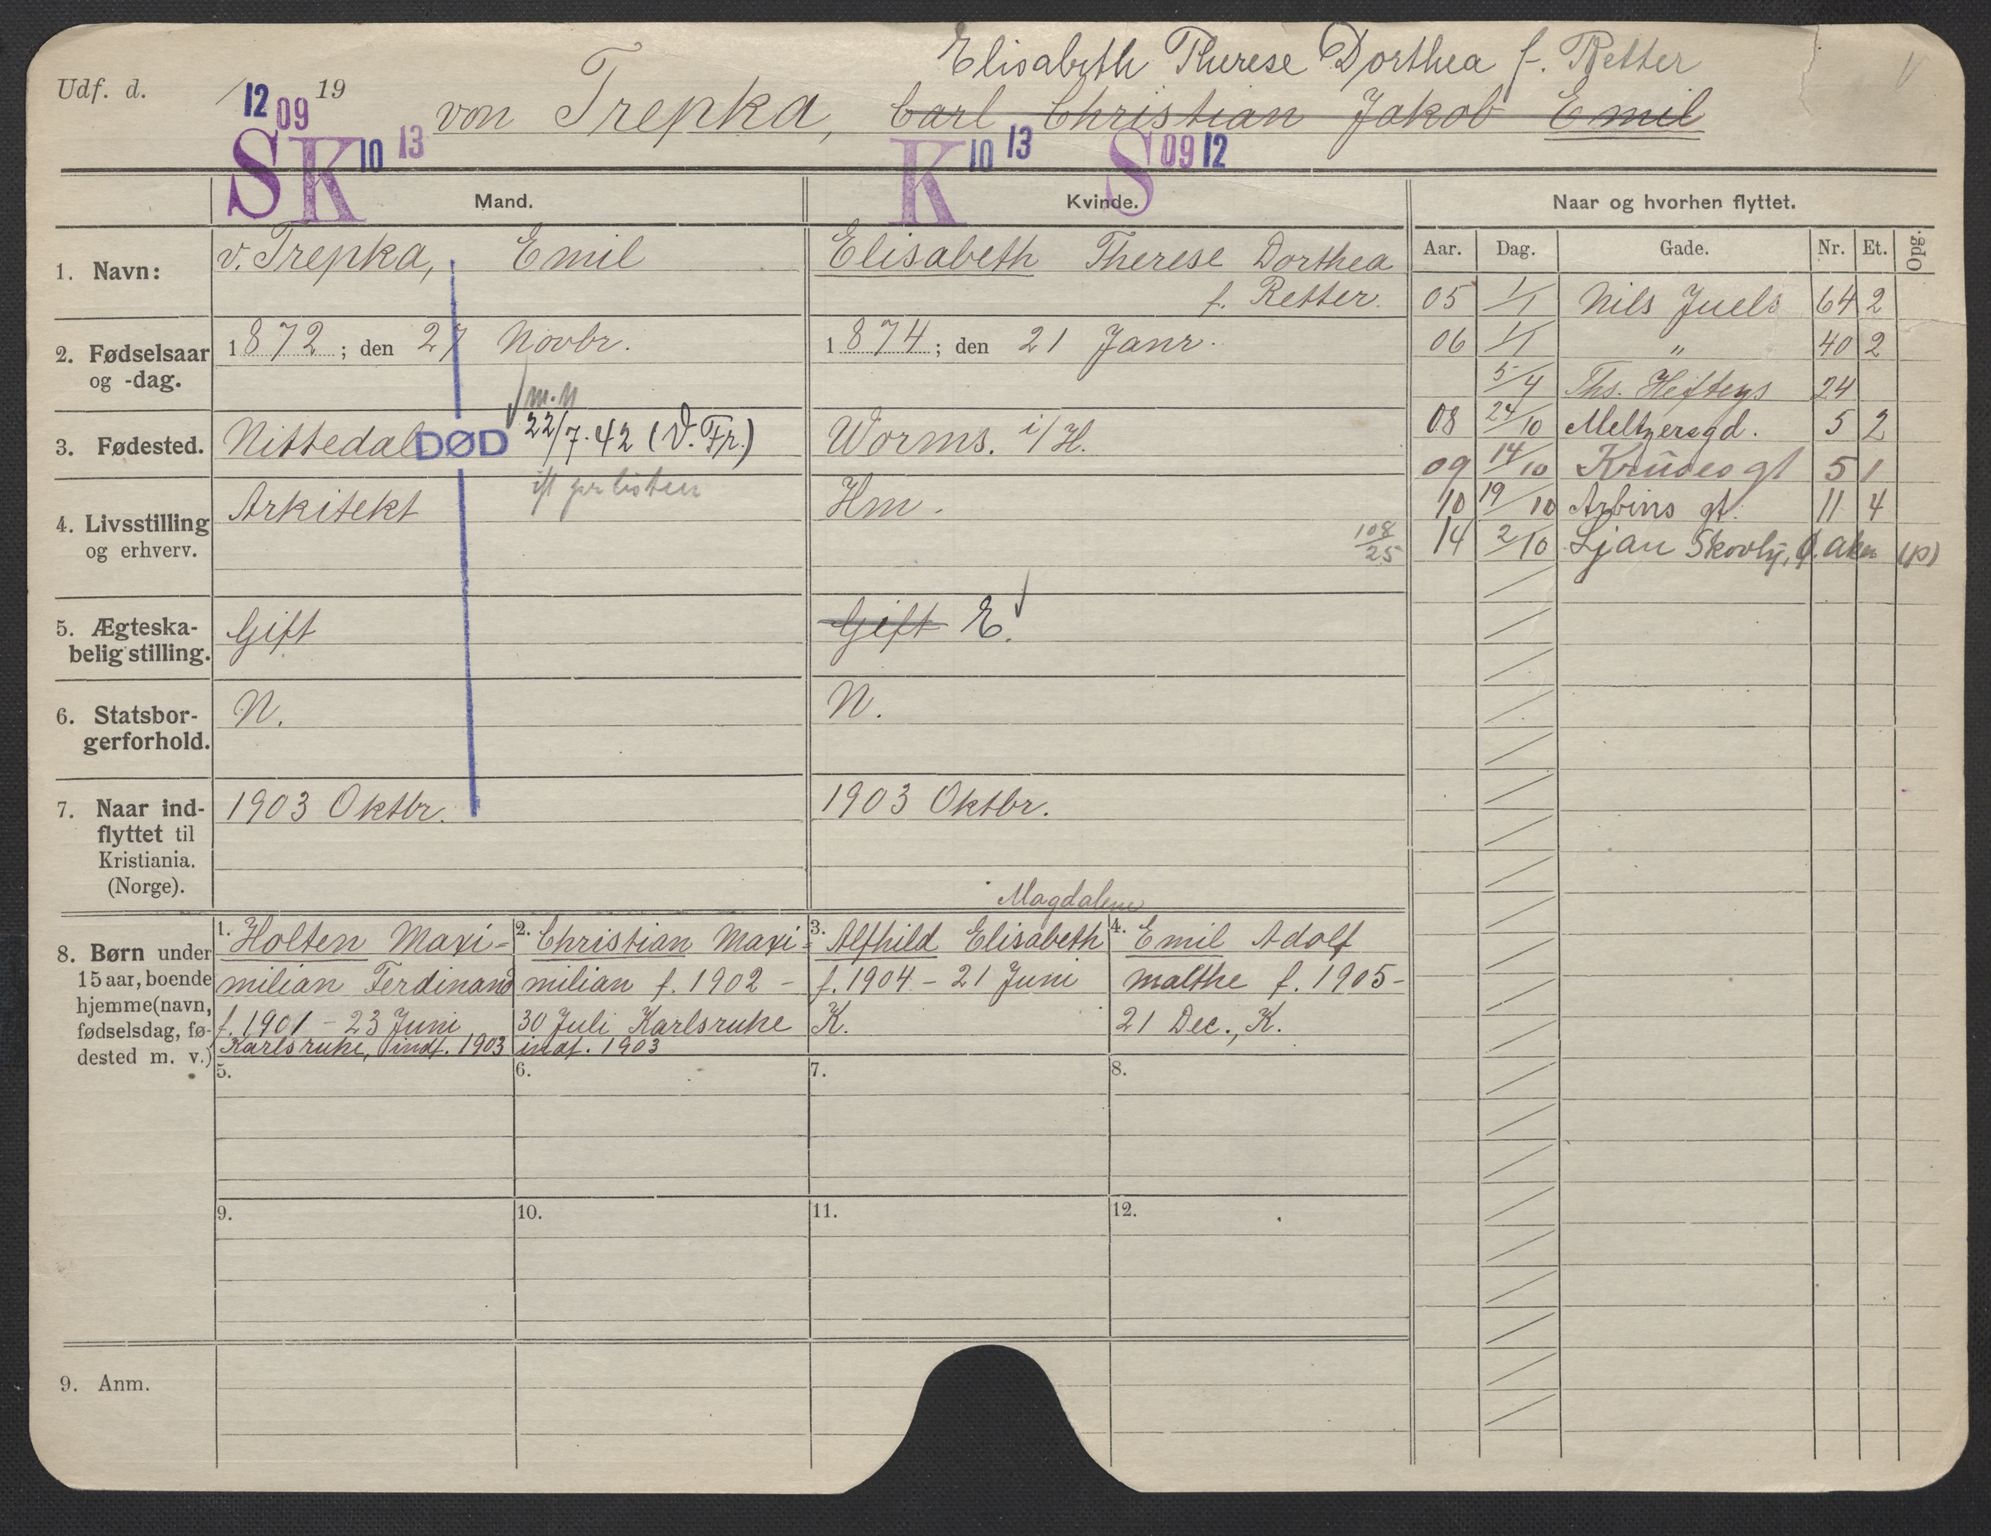 Elisabeth Therese Dorthea f. Retter
Udf. d. / 19 von Trepka, Carl Christian Jakob Emil
12 09 S K 10 13 K 10 13 S 09 12
Mand. Kvinde. Naar og hvorhen flyttet.
Aar. Dag. Gade. Nr. Et. Opg.
1. Navn: v. Trepka, Emil Elisabeth Therese Dorthea
f. Retter.
2. Fødselsaar
og -dag.
1872; den 27 Novbr. 1874; den 21 Janr.
m.n
3. Fødested. Nittedal DØD 22/7.42 (V. Fr.) Worms. i/H.
4. Livsstilling
og erhverv.
Arkitekt Hm.
108/25
5. Ægteska-
belig stilling.
Gift Gift E.
6. Statsbor-
gerforhold.
N. N.
7. Naar ind-
flyttet til
Kristiania.
(Norge).
1903 Oktbr. 1903 Oktbr.
05 1/1 Nils Juels 64 2
06 1/1 " 40 2
5/4 Ths. Hefteys 24
08 24/10 Meltzersgd. 5 2
09 14/10 Kruses gt 5 1
10 19/10 Arbins gt. 11 4
14 2/10 Ljan Skovly, Ø. Aker (p)
8. Børn under
15 aar, boende
hjemme (navn,
fødselsdag, fø-
dested m. v.)
1. Holten Maxi-
milian Ferdinand
f. 1901 - 23 Juni
Karlsruhe, indf. 1903
2. Christian Maxi-
milian f. 1902 -
30 Juli Karlsruhe
indf. 1903
Magdalene
3. Alfhild Elisabeth
f. 1904 - 21 Juni
K.
4. Emil Adolf
Malthe f. 1905-
21 Dec., K.
5. 6. 7. 8.
9. 10. 11. 12.
9. Anm.